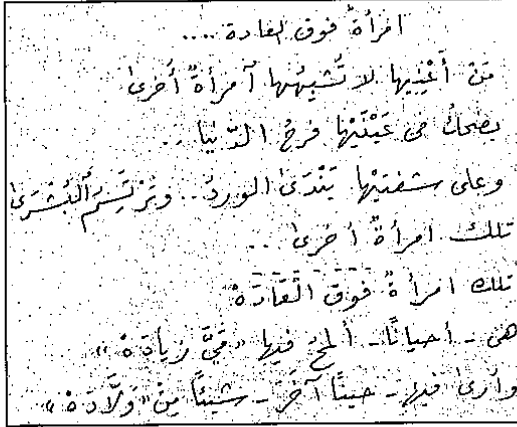 امرأة فوق العادة ....
مَنْ أعْنِيها لا تُشبِهُها آمرأةٌ أخرى
يضحكُ في عَيْنَيْها فرحُ الدّنيا ..
وعلى شفتيْها يَنْدَى الوردُ .. وتَرْتَسِمُ ٱلبُشْرَى
تلك امرأةٌ أخرى ..
تلك امرأةٌ فَوْقَ الْعَادَةْ
هي - أحيانًا - ألمحُ فيها «مَيَّ زِيادَةْ»
وأرى فيها - حينًا آخَرَ - شيئًا مِنْ «وَلَّادَةْ»